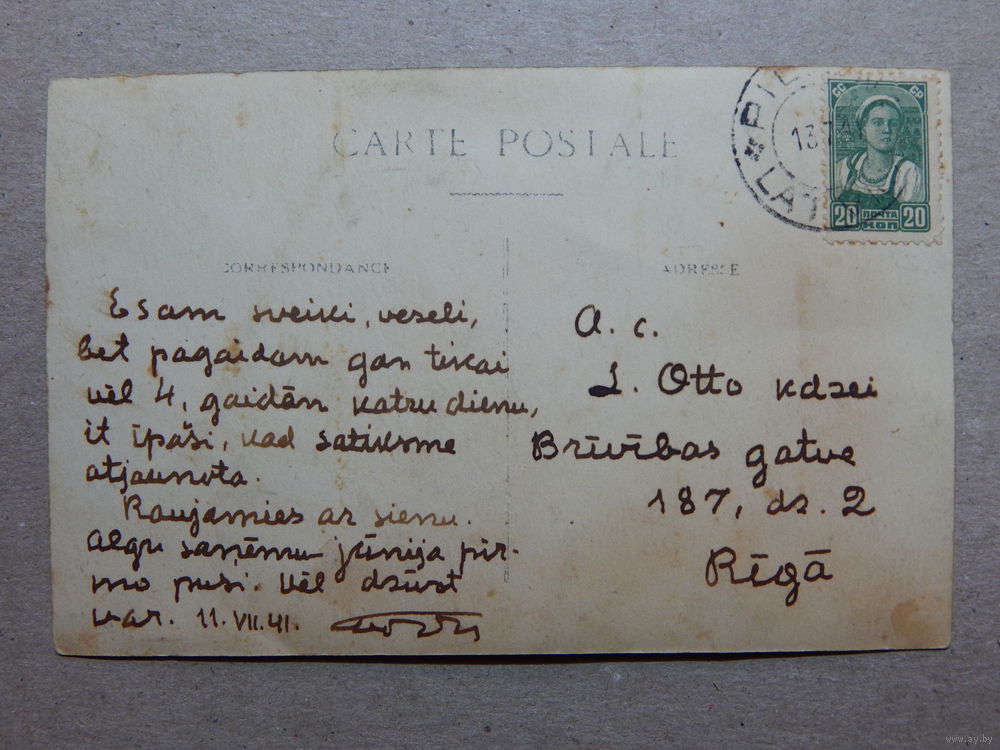 CARTE POSTALE
CORRESPONDANCE
Esam sveiki, veseli,
bet pagaidam gan tikai
vēl 4, gaidām katru dienu,
it īpaši, kad satiksme
atjaunota.
Raujamies ar sienu.
Algu saņēmu jūnija pir-
mo pusi. Vēl dzīvot
var. 11.VII.41.
ADRESSE
A. c.
L. Otto kdzei
Brīvības gatve
187, dz. 2
Rīgā
PIL
13
LAT
СС СР
20 ПОЧТА 20
КОП
www.ay.by